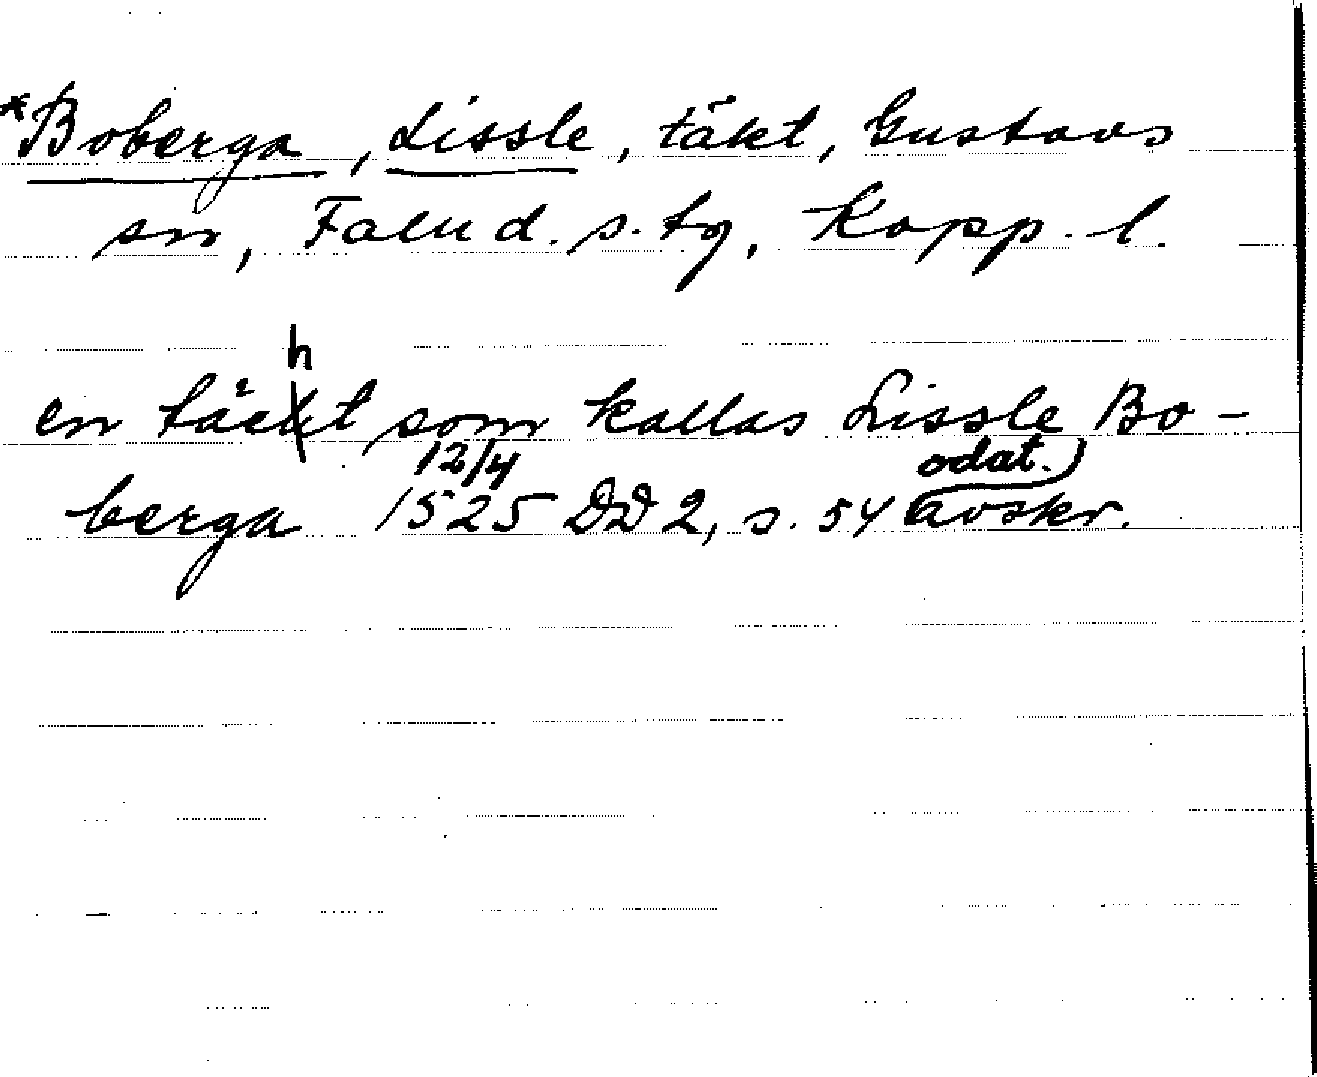 *Boberga, Lissle, täkt, Gustavs
sn, Falu d. s. tg, Kopp. l.
en täckt som kallas Lissle Bo-
h
berga 1525 DD 2, s. 54 avskr.
12/4
odat.)